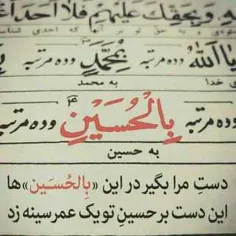 وَبِحَقِّكَ عَلَيْهِمْ فَلا اَحَدَ اَعْ
یا اَللهُ وده مرتبه بِمُحَمَّدٍ وده مرتبه
به محمد
وده مرتبه بِالْحُسَيْنِ وده مرتبه
به حسین
دستِ مرا بگیر در این «بِالحُسَین»ها
این دست بر حسینِ تو یک عمر سینه زد